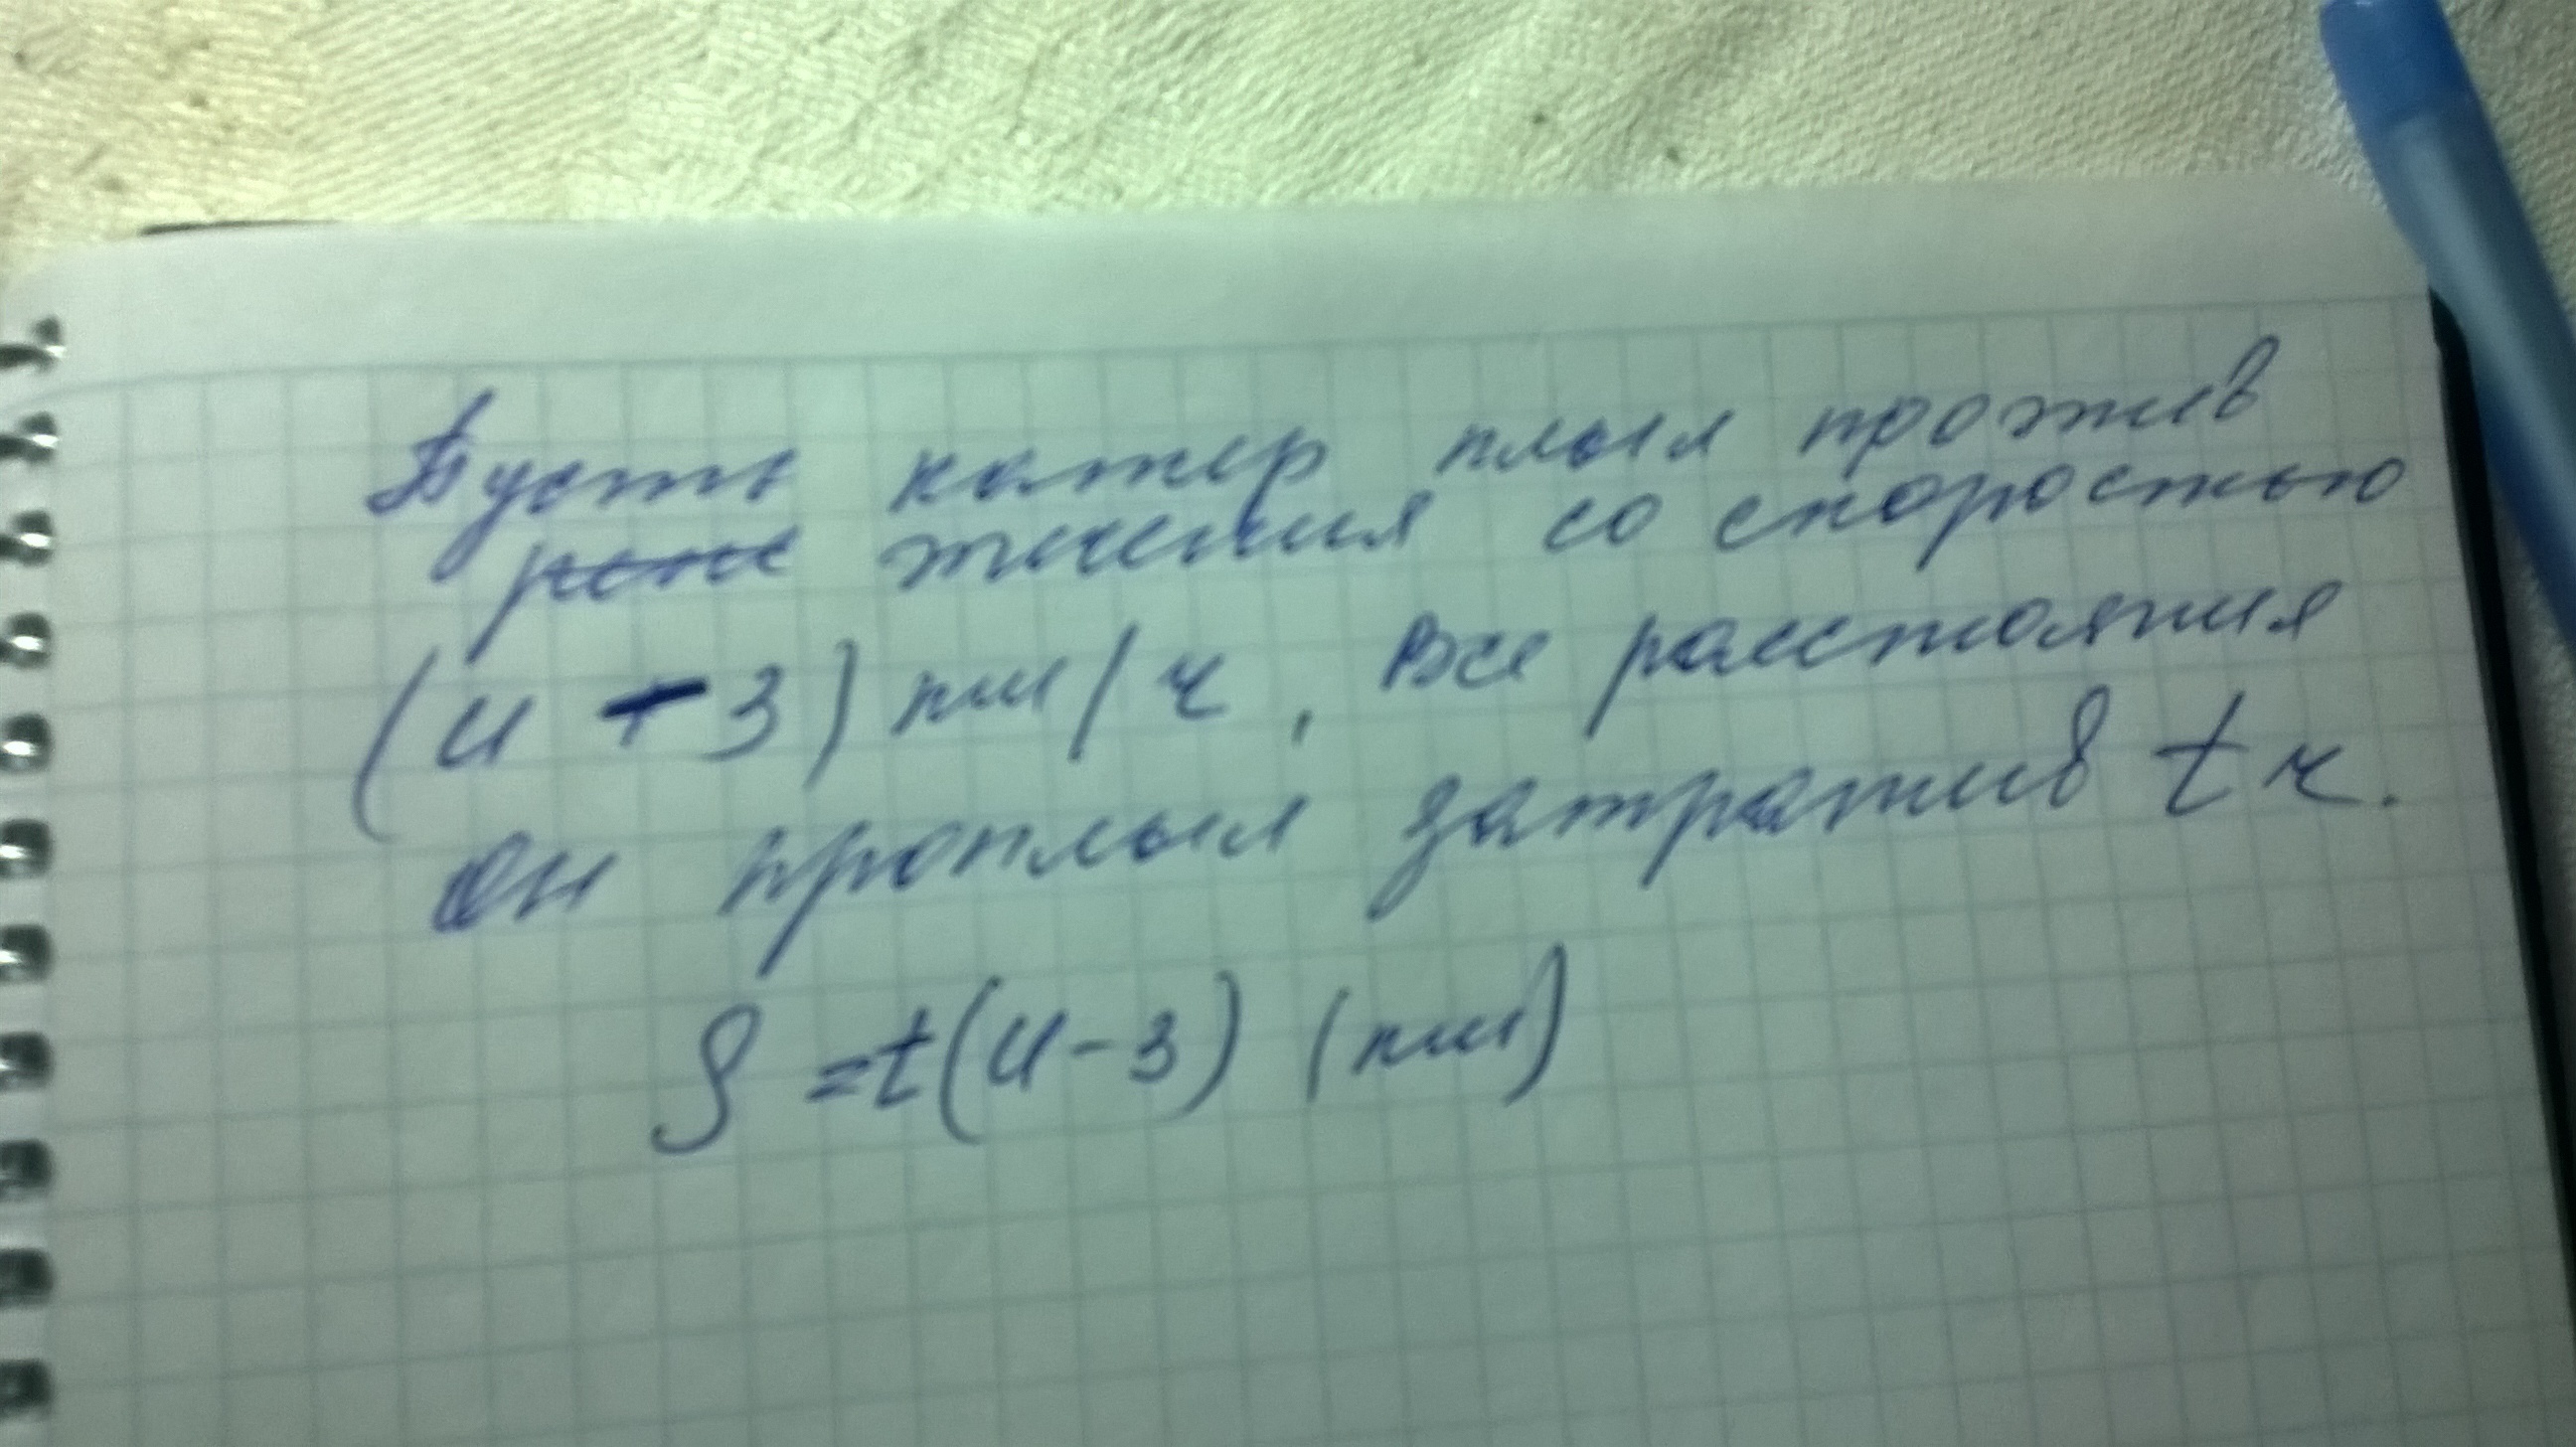 Пусть катер плыл против
реке течения со скоростью
(u - 3) км/ч, Все расстояния
он проплыл затратив t ч.
S =t(u-3) (км)